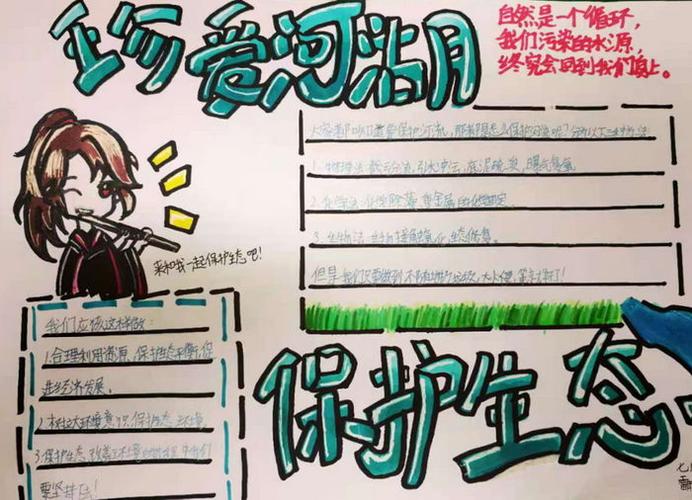 珍爱河沽月
自然是一个循环，
我们污染的水源，
终究会回到我们身上。
大家都知道要保护河流，那我们怎么保护河流呢？分为以下三种方法
1.物理法：截污分流，引水冲污，底泥疏浚，曝气复氧
2.化学法：化学除藻，重金属的化学固定
3.生物法：生物接触氧化，生态修复。
但是我们只要做到不随地扔垃圾，大小便，就行了！
来和我一起保护生态吧！
我们应该这样做：
1.合理利用资源，保护生态平衡，促
进经济发展。
2.树立环境意识，保护生态环境
3.保护生态，改善环境
要坚持
保护生态